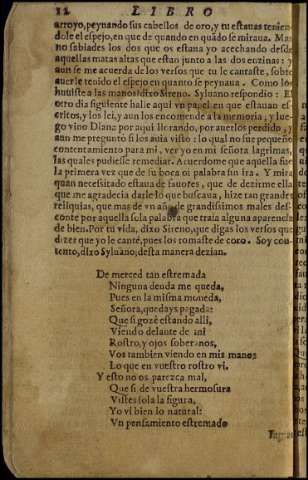 12 LIBRO
arroyo, peynando sus cabellos de oro, y tu estauas teniendole el espejo, en que de quando en quãdo se miraua. Mas
no sabiades los dos que os estaua yo acechando desde
aquellas matas altas que estan junto a las dos enzinas: y
aun se me acuerda de los versos que tu le cantaste, sobre
auerle tenido el espejo en quanto se peynaua. Como los
huuiste a las manos? dixo Sireno. Syluano respondio: El
otro dia siguiente halle aqui vn papel en que estauan escritos, y los lei, y aun los encomende a la memoria; y luego
vino Diana por aqui llorando, por auerlos perdido, y
aun me pregunto si los auia visto: lo qual no fue pequeño
contentamiento para mi, ver yo en mi señora lagrimas,
las quales pudiesse remediar. Acuerdome que aquella fue
la primera vez que de su boca oi palabra sin ira. Y mira
quan necessitado estaua de fauores, que de dezirme ella
que me agradecia darle lo que buscaua, hize tan grandes
reliquias, que mas de vn año de grandissimos males desconte
por aquella sola palabra que traia alguna aparencia
de bien. Por tu vida, dixo Sireno, que digas los versos que
dizes que yo le canté, pues los tomaste de coro. Soy contento,
dixo Syluano; desta manera dezian.
De merced tan estremada
Ninguna deuda me queda,
Pues en la misma moneda,
Señora, quedays pagada:
Que si gozè estando alli,
Viendo delante de mi
Rostro, y ojos soberanos,
Vos tambien viendo en mis manos
Lo que en vuestro rostro vi.
Y esto no os parezca mal,
Que si de vuestra hermosura
Vistes sola la figura,
Yo vi bien lo natural:
Vn pensamiento estremado